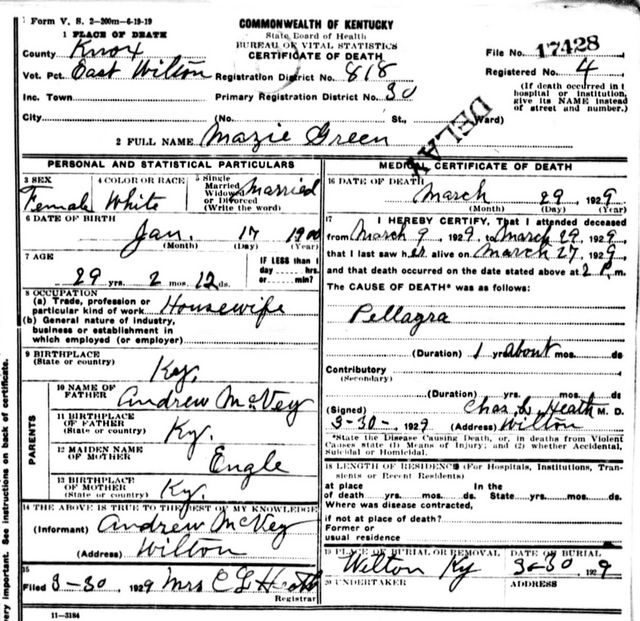 Form V. S. 2-200m-6-19-19
1 PLACE OF DEATH
COMMONWEALTH OF KENTUCKY
State Board of Health
BUREAU OF VITAL STATISTICS
CERTIFICATE OF DEATH
County Knox
File No. 17428
Vot. Pct. East Wilton
Registration District No. 818
Registered No. 4
Inc. Town
Primary Registration District No. 30
(If death occurred in
hospital or institution,
give its NAME instead
of street and number.)
City (No. St., Ward)
DELAY
2 FULL NAME Mazie Green
PERSONAL AND STATISTICAL PARTICULARS
3 SEX Female
4 COLOR OR RACE White
5 Single Married Widowed or Divorced (Write the word) Married
6 DATE OF BIRTH
Jan. 17 1900
(Month) (Day) (Year)
7 AGE
29 yrs. 2 mos. 12 ds.
IF LESS than 1
day hrs.
or min?
8 OCCUPATION
(a) Trade, profession or
particular kind of work Housewife
(b) General nature of industry,
business or establishment in
which employed (or employer)
9 BIRTHPLACE
(State or country) Ky.
PARENTS
10 NAME OF
FATHER Andrew McVey
11 BIRTHPLACE
OF FATHER
(State or country) Ky.
12 MAIDEN NAME
OF MOTHER Engle
13 BIRTHPLACE
OF MOTHER
(State or country) Ky.
14 THE ABOVE IS TRUE TO THE BEST OF MY KNOWLEDGE
(Informant) Andrew McVey
(Address) Wilton
15
Filed 3-30- 1929 Mrs C L Heath
Registrar
11-3184
MEDICAL CERTIFICATE OF DEATH
16 DATE OF DEATH
March 29 1929
(Month) (Day) (Year)
17 I HEREBY CERTIFY, That I attended deceased
from March 9, 1929, to March 29, 1929,
that I last saw her alive on March 27, 1929,
and that death occurred on the date stated above at 2 P.m.
The CAUSE OF DEATH* was as follows:
Pellagra
(Duration) 1 yrs. about mos. ds
Contributory
(Secondary)
(Duration) yrs. mos. ds
(Signed) Chas. L. Heath M. D.
3-30-, 1929 (Address) Wilton
*State the Disease Causing Death, or, in deaths from Violent
Causes state (1) Means of Injury; and (2) whether Accidental,
Suicidal or Homicidal.
18 LENGTH OF RESIDENCE (For Hospitals, Institutions, Tran-
sients or Recent Residents)
at place In the
of death yrs. mos. ds. State yrs. mos. ds
Where was disease contracted,
if not at place of death?
Former or
usual residence
19 PLACE OF BURIAL OR REMOVAL DATE OF BURIAL
Wilton Ky 3-30 1929
20 UNDERTAKER ADDRESS
very important. See instructions on back of certificate.